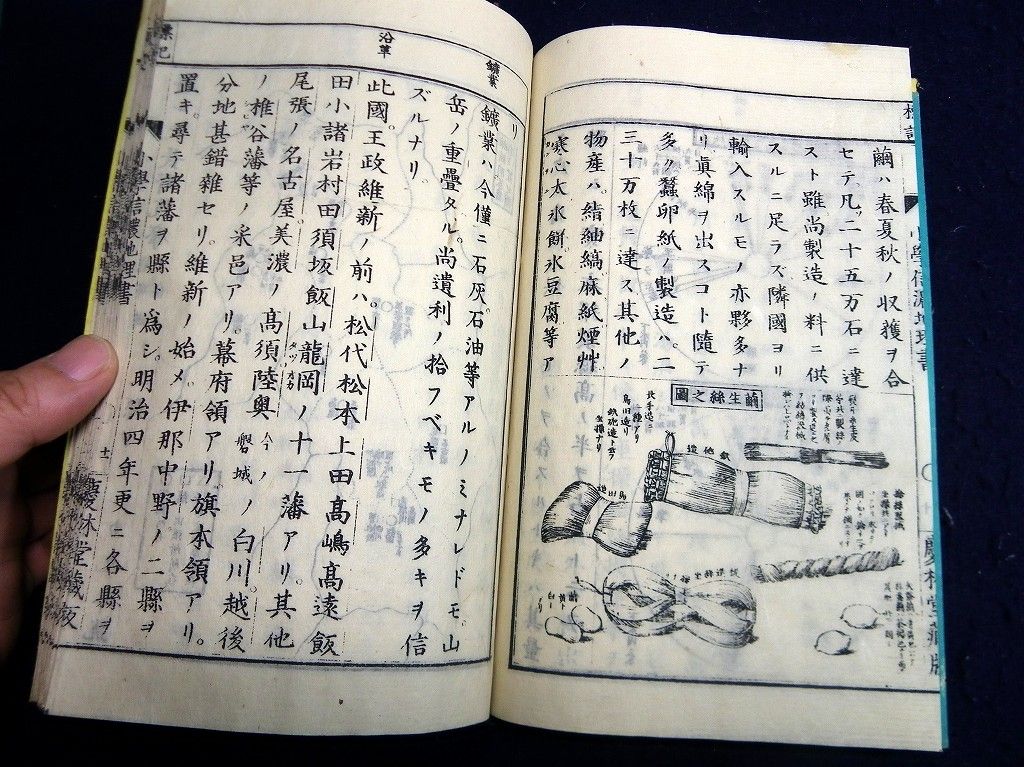 標記
小學信濃地理書
慶林堂藏版
繭ハ春夏秋ノ収獲ヲ合
セテ凡二十五万石ニ達
スト雖尚製造ノ料ニ供
スルニ足ラズ隣國ヨリ
輸入スルモノ亦夥多ナ
リ眞綿ヲ出スコト隨テ
多ク蠶卵紙ノ製造ハ二
三十万枚ニ達ス其他ノ
物産ハ絹紬縞麻紙煙艸
寒心太氷餅氷豆腐等ア
繭生絲之圖
鉄砲造
島田造
リ
鑛業
鑛業ハ今僅ニ石灰石油等アルノミナレドモ山
岳ノ重疊タル尚遺利ノ拾フベキモノ多キヲ信
ズルナリ
沿革
此國王政維新ノ前ハ松代松本上田高嶋高遠飯
田小諸岩村田須坂飯山龍岡ノ十一藩アリ其他
タツオカ
尾張ノ名古屋美濃ノ高須陸奥今ノ磐城ノ白川越後
ノ椎谷藩等ノ采邑アリ幕府領アリ旗本領アリ
分地甚錯雜セリ維新ノ始メ伊那中野ノ二縣ヲ
置キ尋テ諸藩ヲ縣ト為シ明治四年更ニ各縣ヲ
標記
小學信濃地理書
十
慶林堂藏版